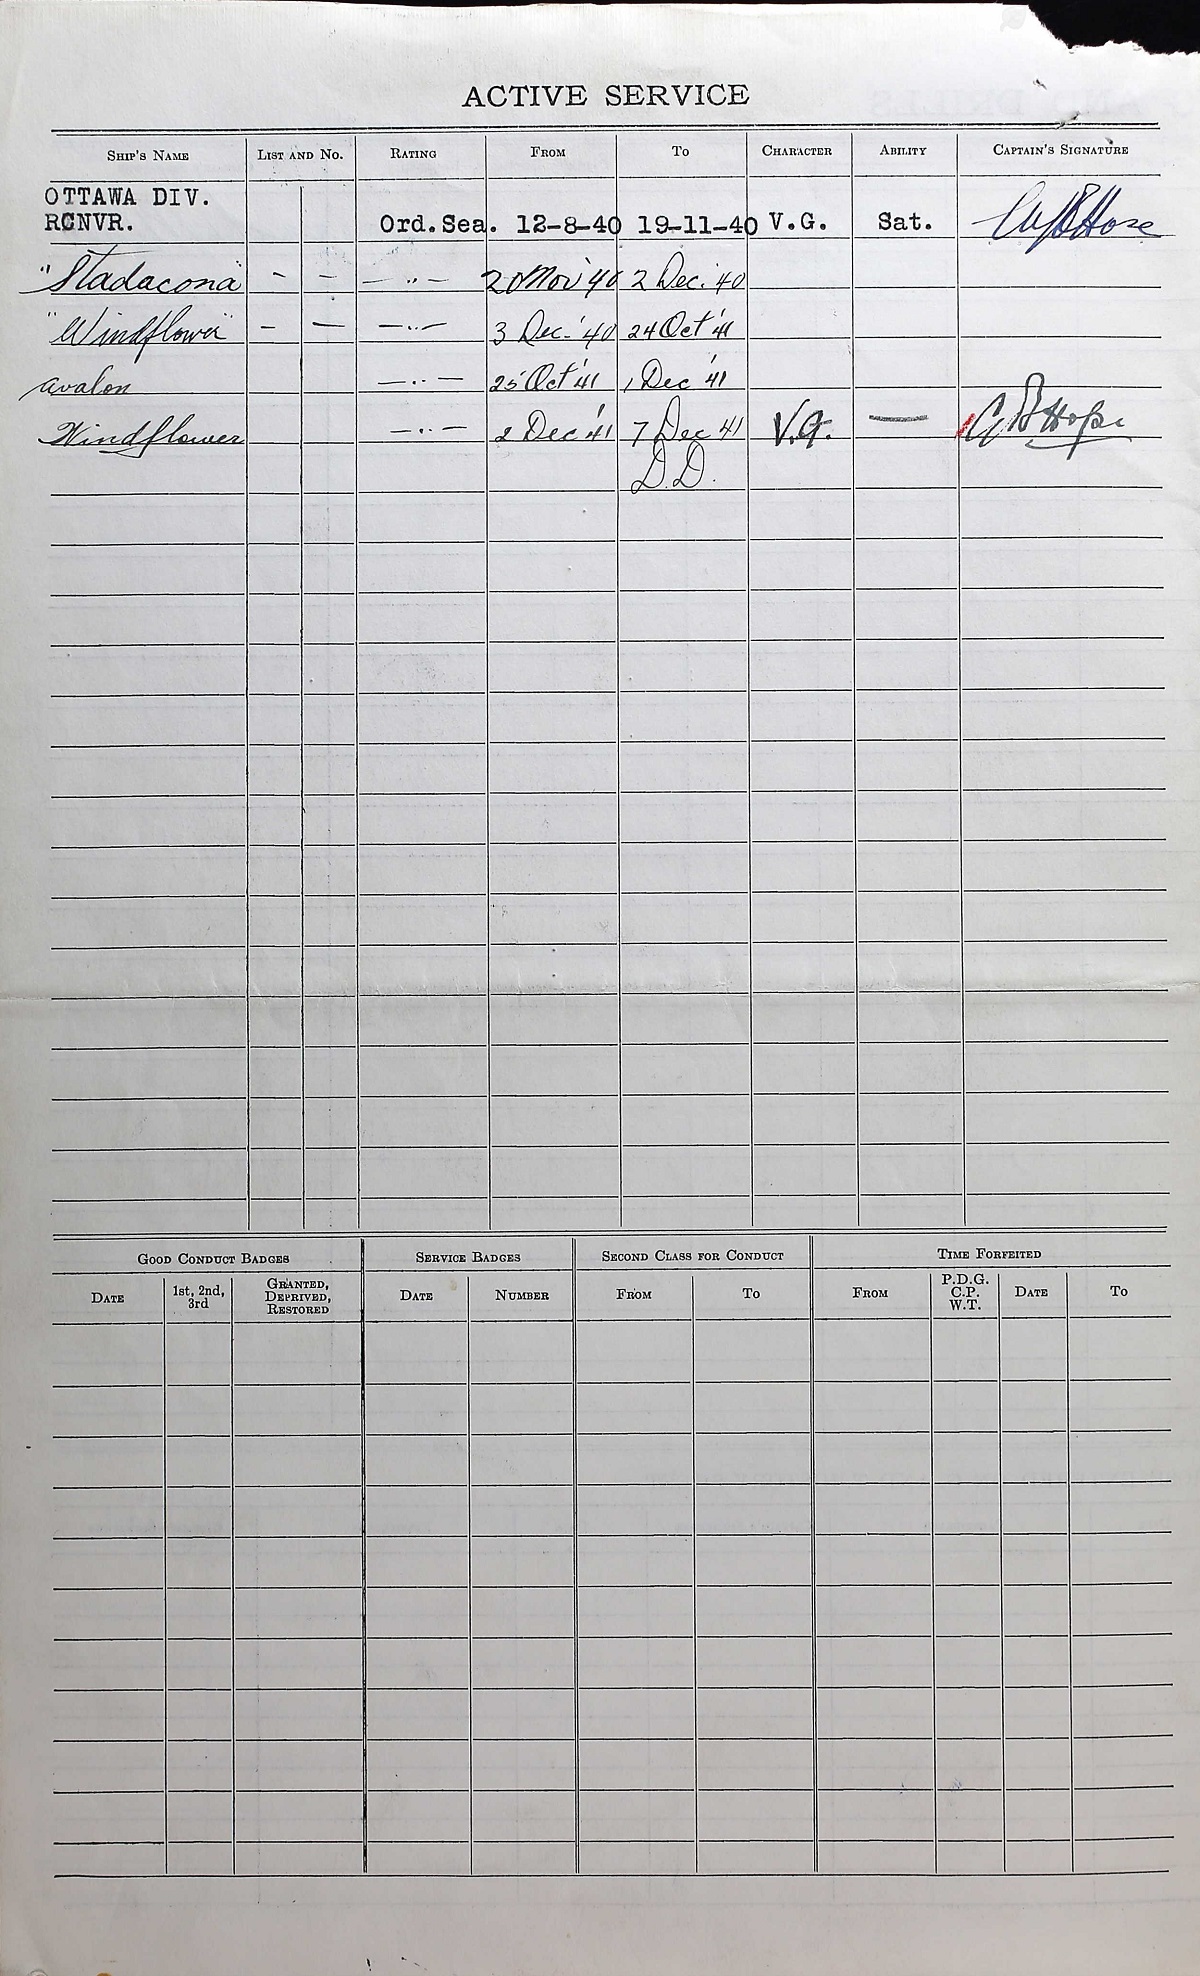 ACTIVE SERVICE
SHIP'S NAME LIST AND NO. RATING FROM TO CHARACTER ABILITY CAPTAIN'S SIGNATURE
OTTAWA DIV.
RCNVR. Ord. Sea. 12-8-40 19-11-40 V.G. Sat.
"Stadacona" - - — " — 20 Nov '40 2 Dec. '40
"Windflower" - — — " — 3 Dec. '40 24 Oct '41
Avalon — " — 25 Oct '41 1 Dec '41
Windflower — " — 2 Dec '41 7 Dec 41 V.G. —
D.D.
GOOD CONDUCT BADGES SERVICE BADGES SECOND CLASS FOR CONDUCT TIME FORFEITED
DATE 1st, 2nd, 3rd GRANTED, DEPRIVED, RESTORED DATE NUMBER FROM TO FROM P.D.G. C.P. W.T. DATE TO